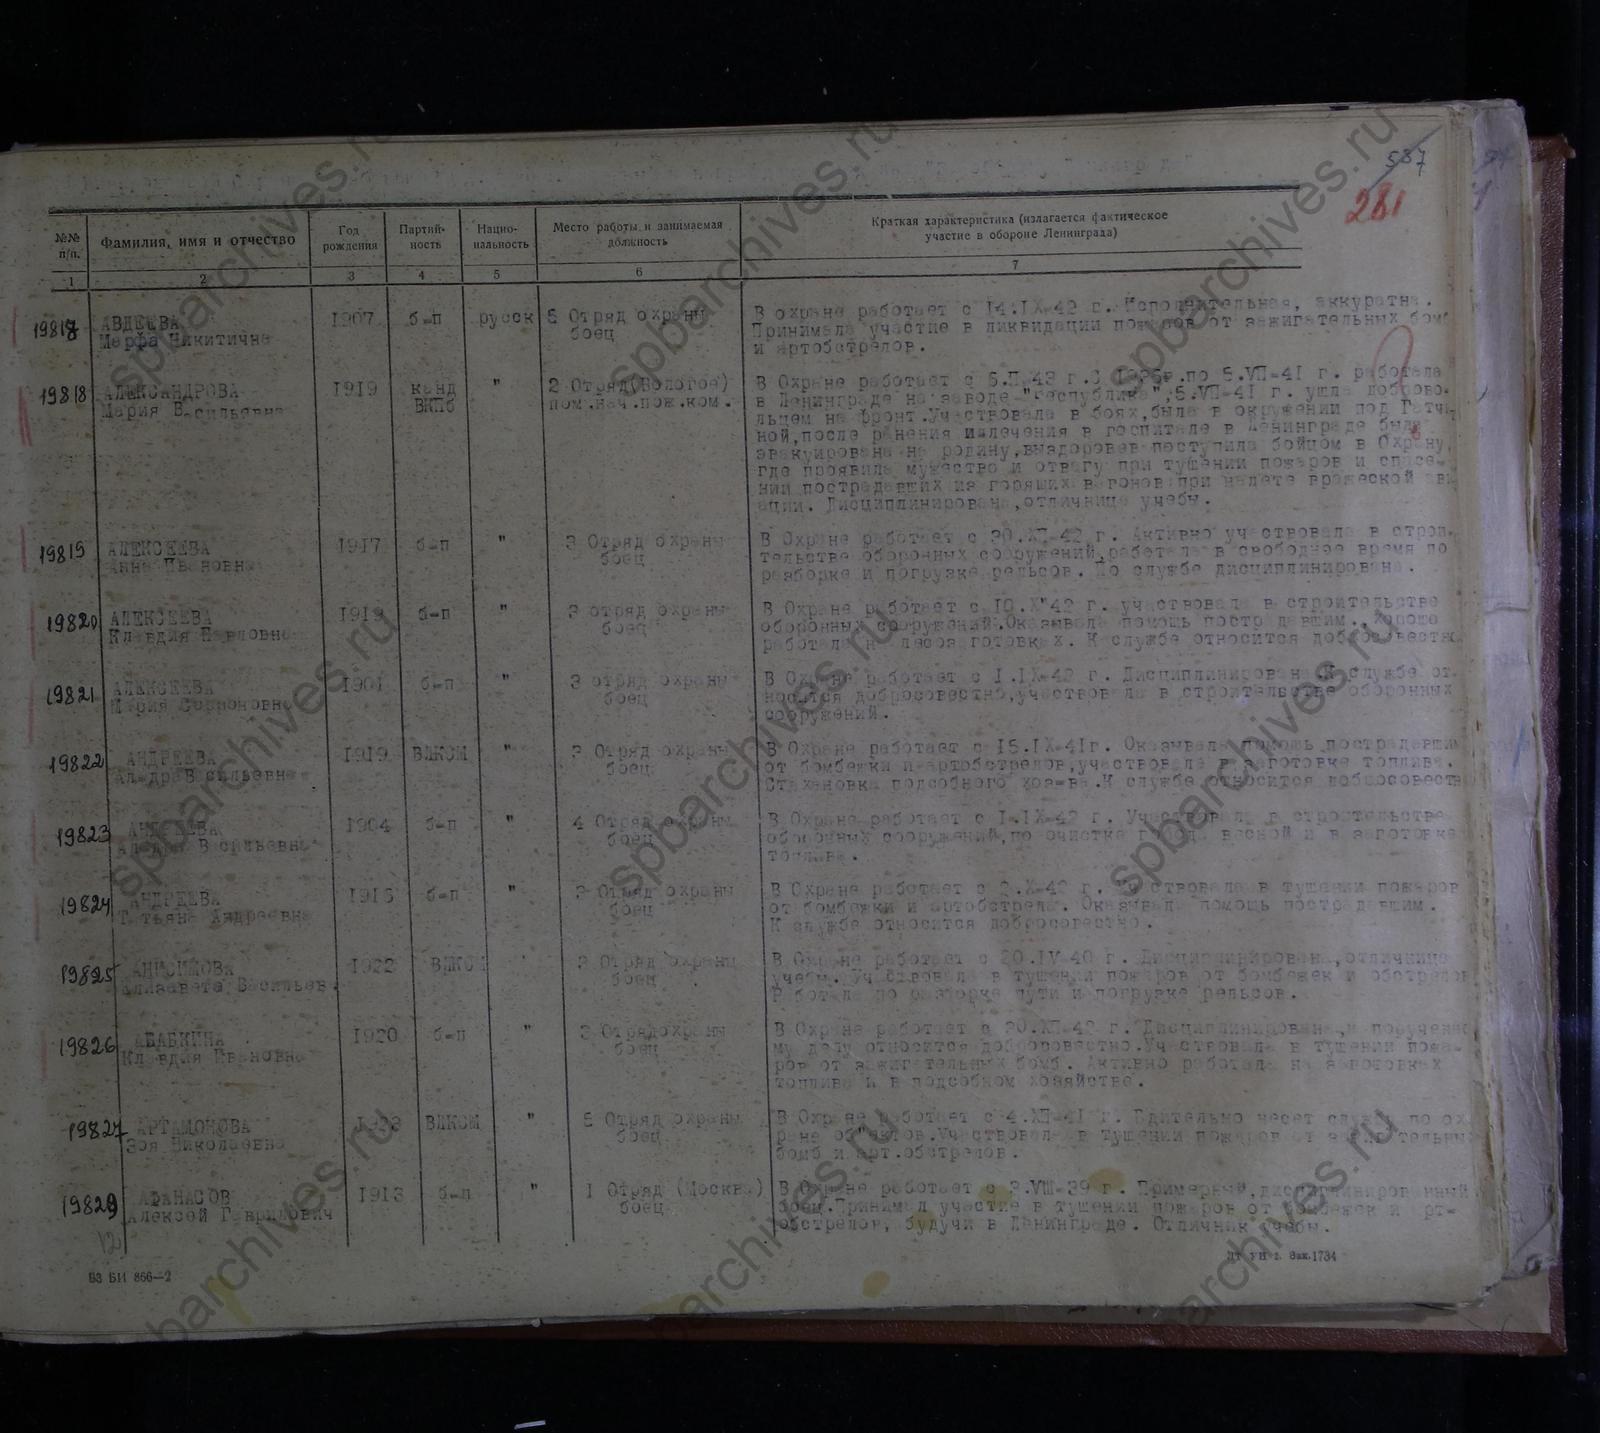 587
281
№№ п/п. Фамилия, имя и отчество Год рождения Партий-ность Нацио-нальность Место работы и занимаемая должность Краткая характеристика (излагается фактическое участие в обороне Ленинграда)
1 2 3 4 5 6 7
19817 АВДЕЕВА 1907 б-п русск 5 Отряд охраны В охране работает с 14.IX-42 г. Исполнительная, аккуратна.
Марфа Никитична боец Принимала участие в ликвидации пожаров от зажигательных бомб
и артобстрелов.
19818 АЛЕКСАНДРОВА 1919 канд " 2 Отряд(Бологое) В Охране работает с 5.П-43 г.С по 5.УП-41 г. работала
Мария Васильевна ВКПб пом.нач.пож.ком. в Ленинграде на заводе "Республика", 5.УП-41 г. ушла доброво-
льцем на фронт.Участвовала в боях,была в окружении под Гатчи
ной,после ранения излечения в госпитале в Ленинграде была
эвакуирована на родину,выздоровев поступила бойцом в Охрану,
где проявила мужество и отвагу при тушении пожаров и спасе-
нии пострадавших из горящих вагонов при налете вражеской ави
ации. Дисциплинирована,отличница учебы.
19819 АЛЕКСЕЕВА 1917 б-п " 3 Отряд охраны В Охране работает с 30.ХП-42 г. Активно участвовала в строи-
Анна Ивановна боец тельстве оборонных сооружений,работала в свободное время по
разборке и погрузке рельсов. По службе дисциплинирована.
19820 АЛЕКСЕЕВА 1919 б-п " 3 отряд охраны В Охране работает с 10.Х-42 г. участвовала в строительстве
Клавдия Павловна боец оборонных сооружений.Оказывала помощь пострадавшим., хорошо
работала на лесозаготовках. К службе относится добросовестно
19821 АЛЕКСЕЕВА 1901 б-п " 3 отряд охраны В Охране работает с 1.IX-42 г. Дисциплинирована К службе от-
Мария боец носится добросовестно,участвовала в строительстве оборонных
сооружений.
19822 АНДРЕЕВА 1919 ВЛКСМ " 3 Отряд охраны В Охране работает с 15.IX-41г. Оказывала помощь пострадавшим
Васильевна боец от бомбежки и артобстрелов,участвовала в заготовке топлива.
Стахановка подсобного хоз-ва.К службе относится добросовестн
19823 АНДРЕЕВА 1904 б-п " 4 Отряд охраны В Охране работает с 1.IX-42 г. Участвовала в строительстве
Васильевна боец оборонных сооружений,по очистке города весной и в заготовке
топлива.
19824 АНДРЕЕВА 1916 б-п " 3 Отряд охраны В Охране работает с 2.Х-42 г. Участвовала в тушении пожаров
Татьяна Андреевна боец от бомбежки и артобстрела. Оказывала помощь пострадавшим.
К службе относится добросовестно.
19825 АНИСИМОВА 1922 ВЛКСМ " 3 Отряд охраны В Охране работает с 20.IУ-40 г. Дисциплинирована,отличница
Елизавета Васильев. боец учебы. Участвовала в тушении пожаров от бомбежек и обстрелов
Работала по разборке пути и погрузке рельсов.
19826 АБАБКИНА 1920 б-п " 3 Отрядохраны В Охране работает с 20.ХП-42 г. Дисциплинирована,к поручено
Клавдия Ивановна боец му делу относится добросовестно.Участвовала в тушении пожа-
ров от зажигательных бомб. Активно работала на заготовках
топлива и в подсобном хозяйстве.
19827 АРТАМОНОВА 1923 ВЛКСМ " 5 Отряд охраны В Охране работает с 4.ХП-41 г. Бдительно несет службу по ох
Зоя Николаевна боец ране объектов.Участвовала в тушении пожаров от зажигательных
бомб и арт.обстрелов.
19829 АФАНАСОВ 1913 б-п " 1 Отряд (Москва) В Охране работает с 3.УШ-39 г. Примерный,дисциплинированный
Алексей Гаврилович боец боец.Принимал участие в тушении пожаров от бомбежек и арт-
обстрелов, будучи в Ленинграде. Отличник учебы.
12
ВЗ БИ 866—2
Зак.1734
spbarchives.ru